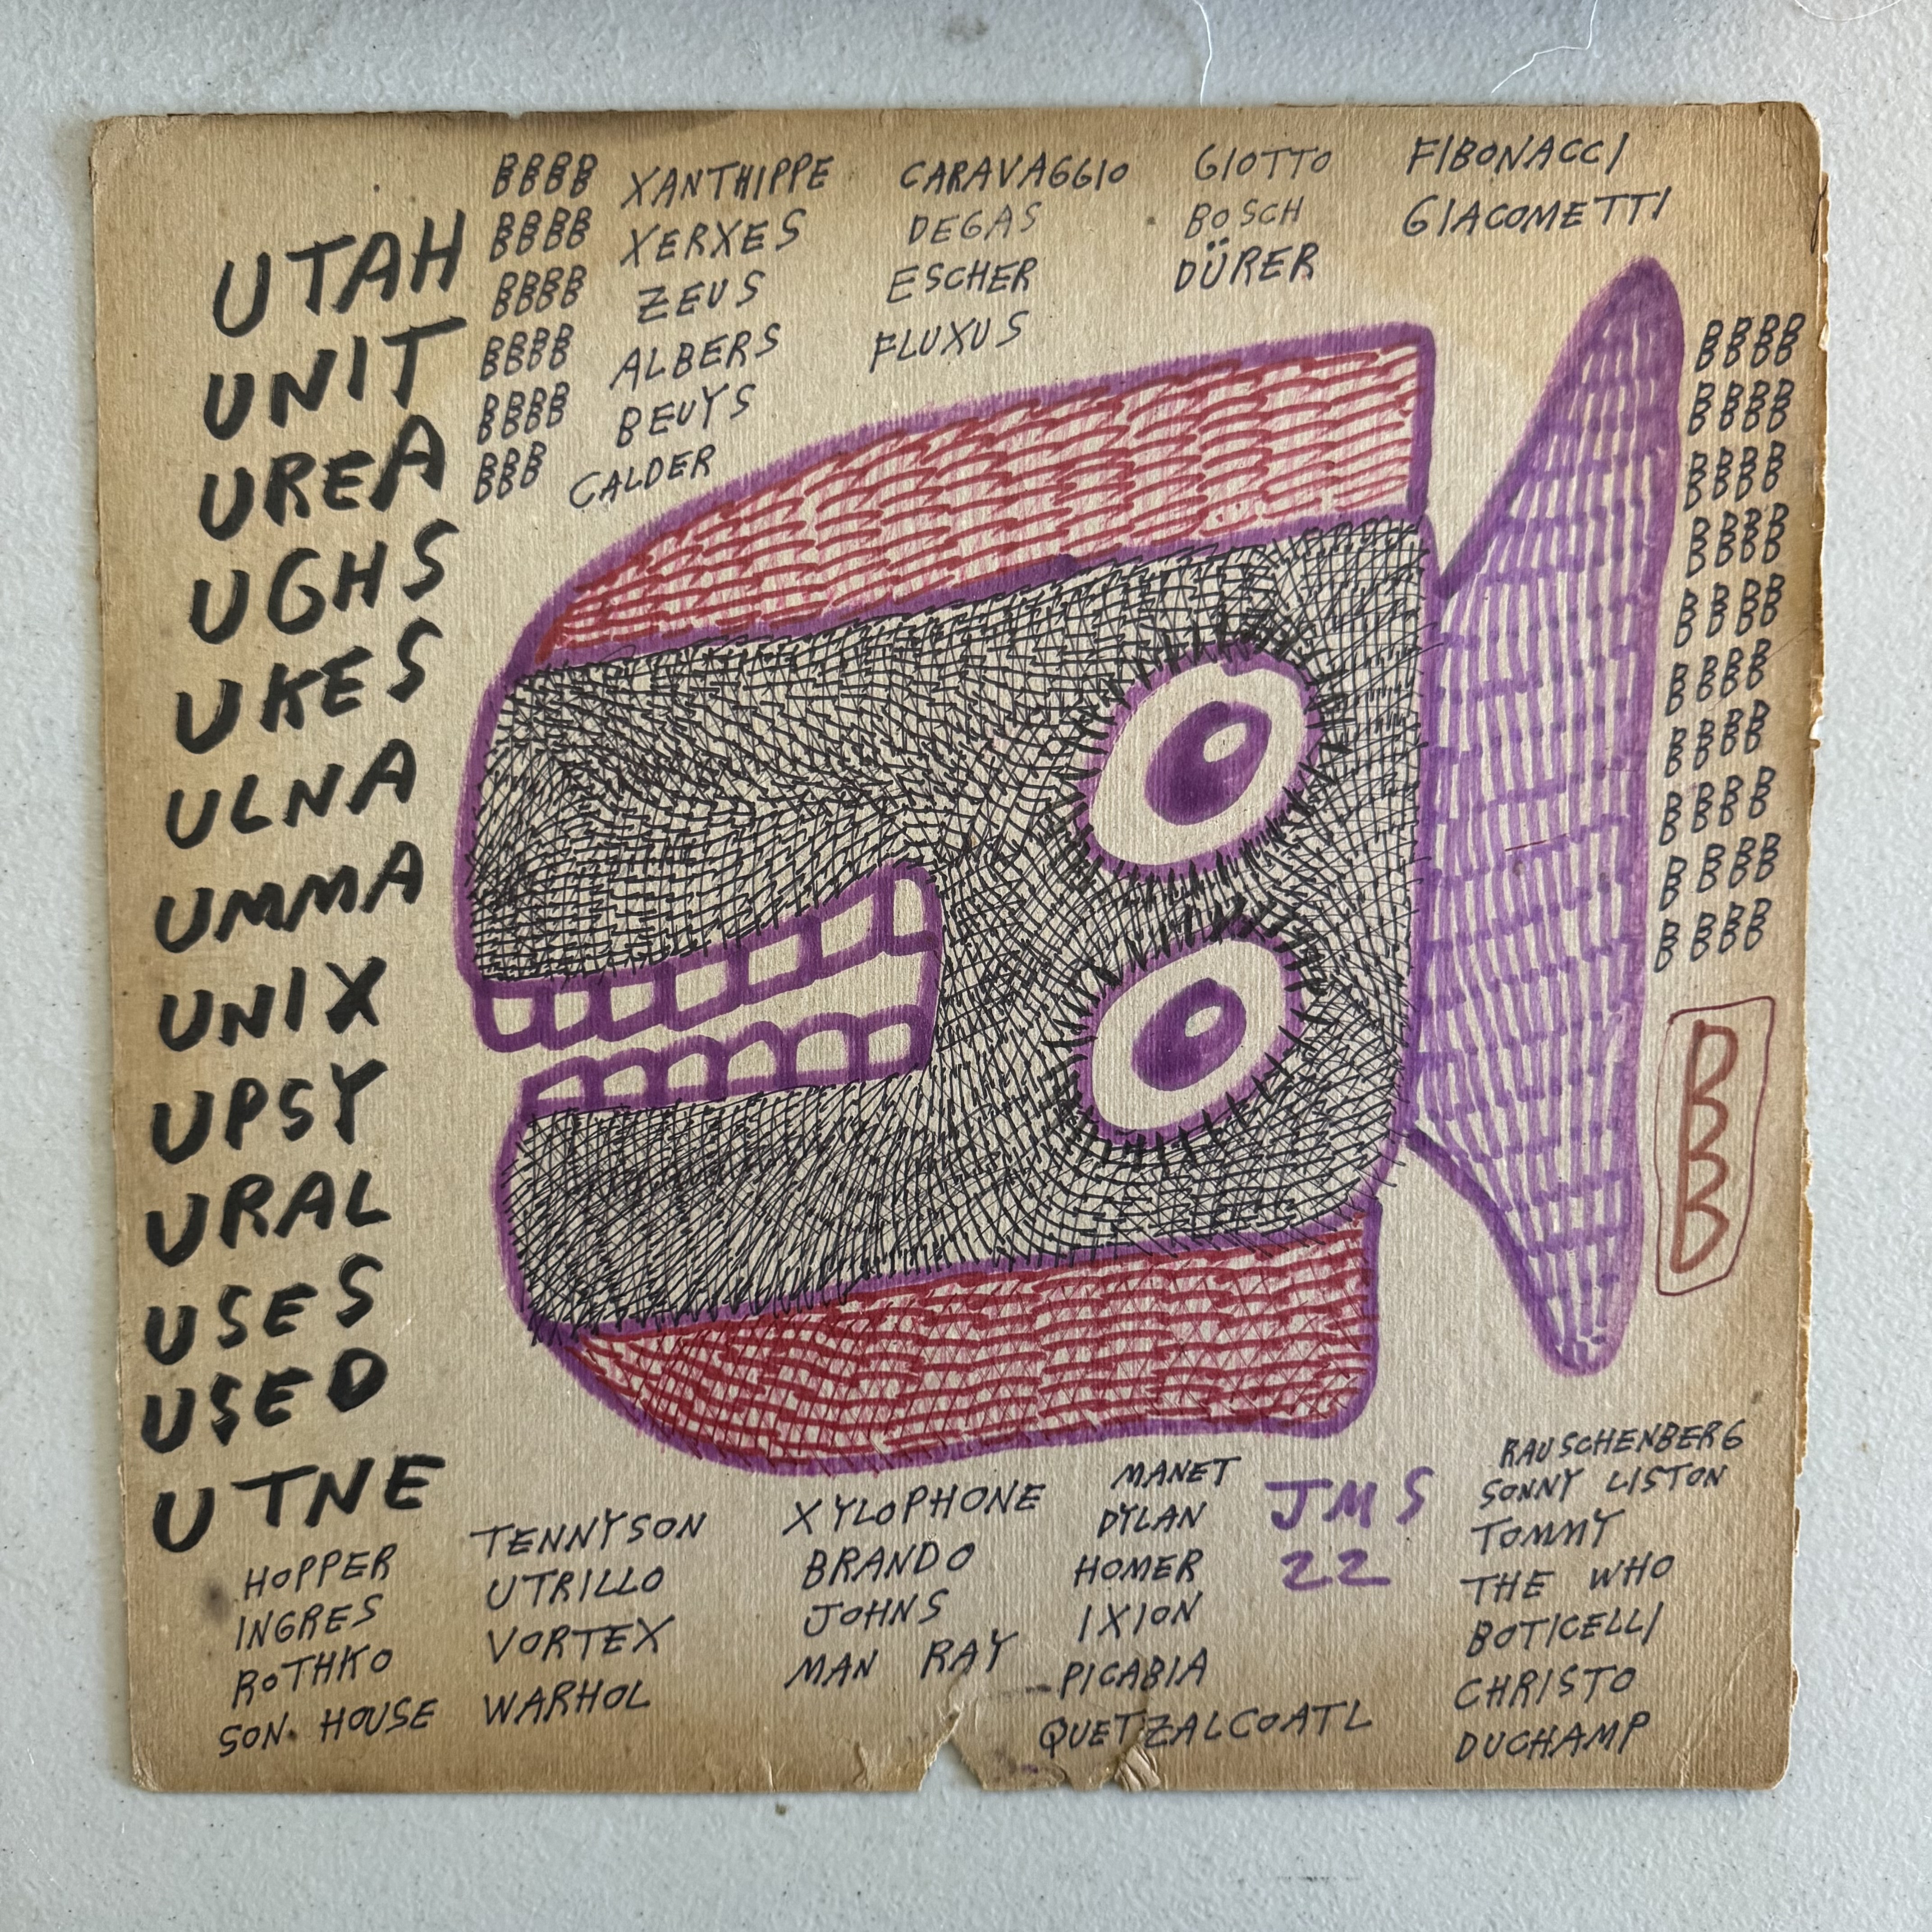 UTAH
UNIT
UREA
UGHS
UKES
ULNA
UMMA
UNIX
UPSY
URAL
USES
USED
UTNE
BBBB
BBBB
BBBB
BBBB
BBBB
BBB
XANTHIPPE
XERXES
ZEUS
ALBERS
BEUYS
CALDER
CARAVAGGIO
DEGAS
ESCHER
FLUXUS
GIOTTO
BOSCH
DÜRER
FIBONACCI
GIACOMETTI
BBBB
BBBB
BBBB
BBBB
BBBB
BBBB
BBBB
BBBB
BBBB
BBBB
BBB
HOPPER
INGRES
ROTHKO
SON HOUSE
TENNYSON
UTRILLO
VORTEX
WARHOL
XYLOPHONE
BRANDO
JOHNS
MAN RAY
MANET
DYLAN
HOMER
IXION
PICABIA
QUETZALCOATL
JMS
22
RAUSCHENBERG
SONNY LISTON
TOMMY
THE WHO
BOTICELLI
CHRISTO
DUCHAMP